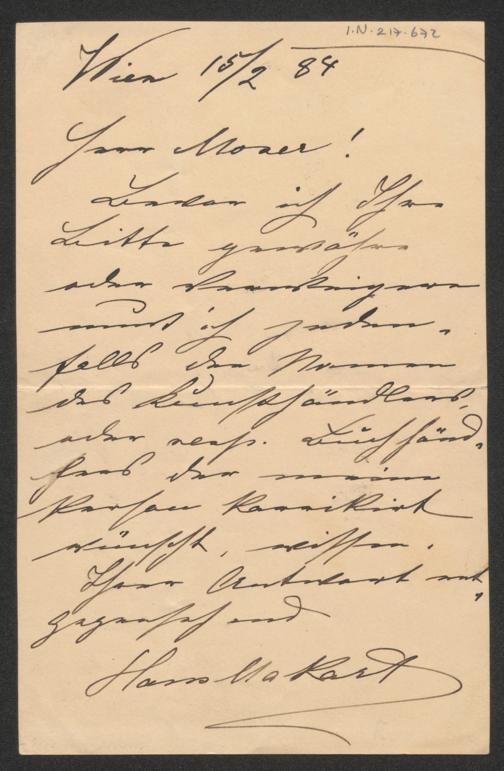 I.N. 217.672
Wien 15/2 84
Herr Moser!
Bevor ich Ihre
Bitte gewähre
oder verweigere
muß ich jeden-
falls den Namen
des Kunsthändlers,
oder resp. Buchhänd-
lers der meine
Person karrikirt
wünscht, wissen.
Ihrer Antwort ent-
gegensehend
Hans Makart